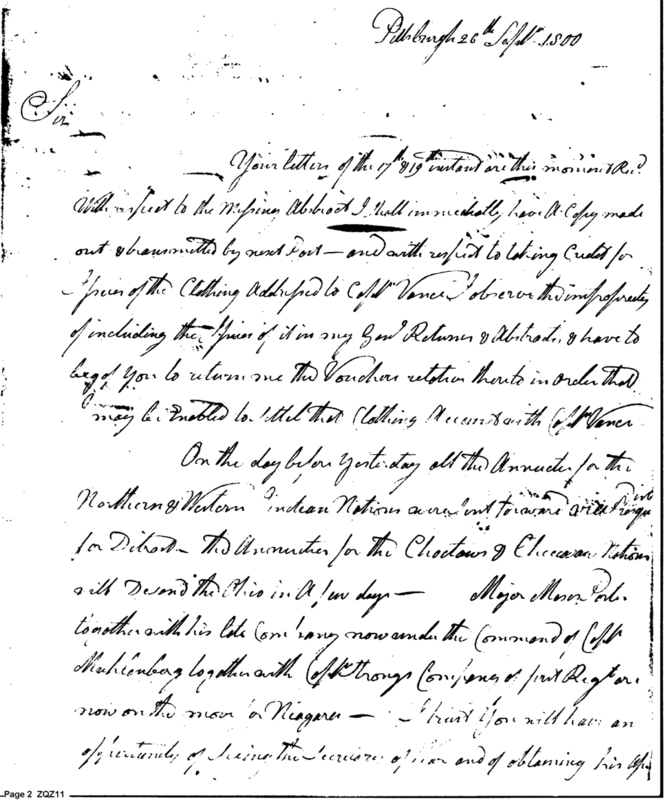 Pittsburgh 26th Sept. 1800
Sir
Your letters of the 17th & 19th instant are this moment Recd.
With respect to the Missing Abstract I shall immediately have A Copy made
out & transmitted by next Post — and with respect to taking Credit for
Issues of the Clothing Addressed to Captn. Vance I observe the impropriety
of including the Issues of it in my Genl. Returns & Abstracts, & have to
beg of You to return me the Vouchers relative thereto in order that
I may be Enabled to settel that Clothing Account with Captn. Vance
On the day before Yesterday all the Annuities for the
Northern & Western Indian Nations were sent forward via
for Detroit — the Annuities for the Choctaws & Chicasaw Nations
will Decend the Ohio in A few days — Major Moses Porter
together with his late Company now under the Command of Captn.
Muhlenberg together with Captn. Strongs Company of first Regt. are
now on the move for Niagara — I trust You will have an
oppertunity of Seeing the Secretary of War and of obtaining his
Page 2 ZQZ11